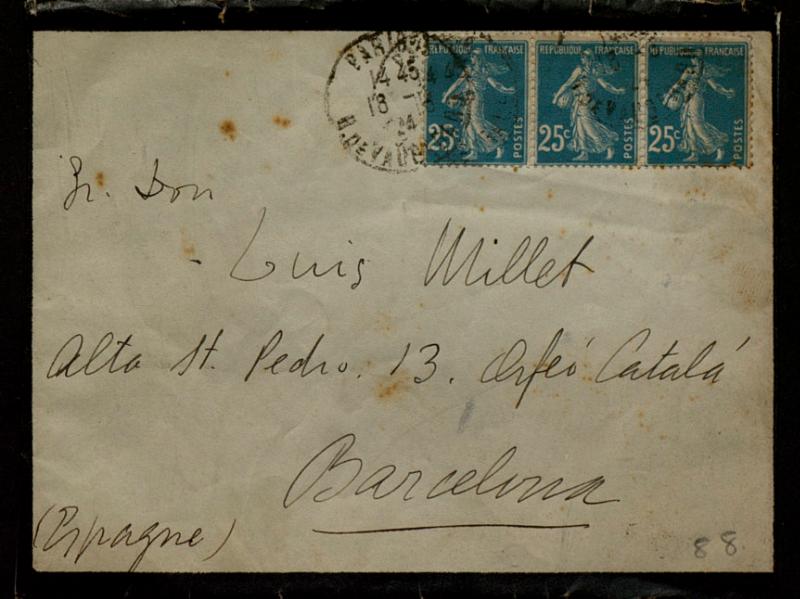 REPUBLIQUE FRANÇAISE REPUBLIQUE FRANÇAISE REPUBLIQUE FRANÇAISE
25c POSTES 25c POSTES 25c POSTES
PARIS
14 45
18
24
Sr. Don
Luis Millet
Alta St. Pedro. 13. Orfeó Catalá
Barcelona
(Espagne)
88.